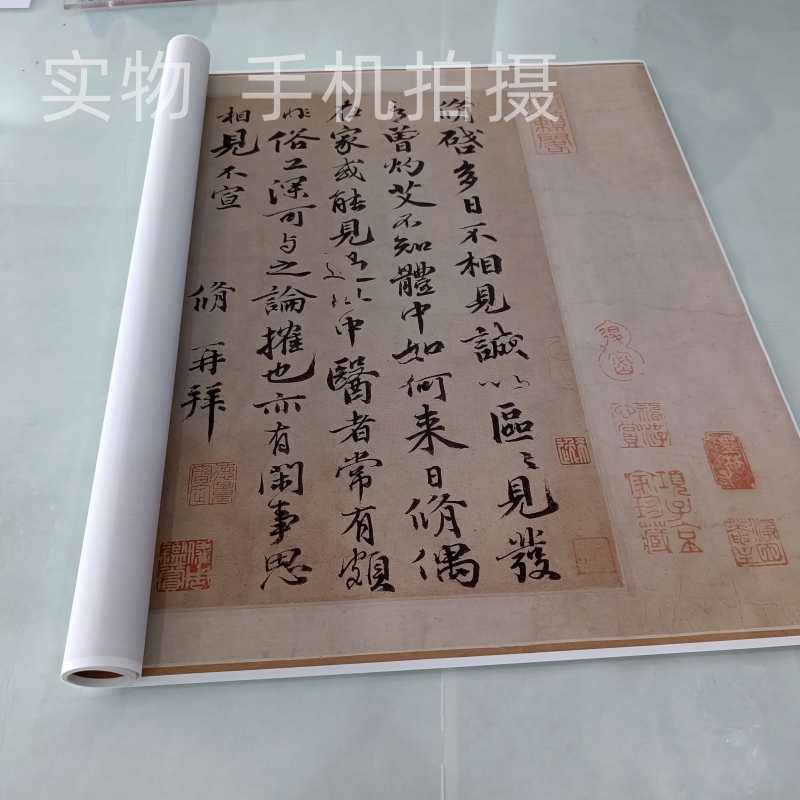 实物 手机拍摄
脩啓多日不相見誠以區〻見發
言曾灼艾不知體中如何来日脩偶
在家或能見過此中醫者常有頗
非俗工深可与之論搉也亦有閑事思
相見不宣
脩再拜
項子京家珍藏